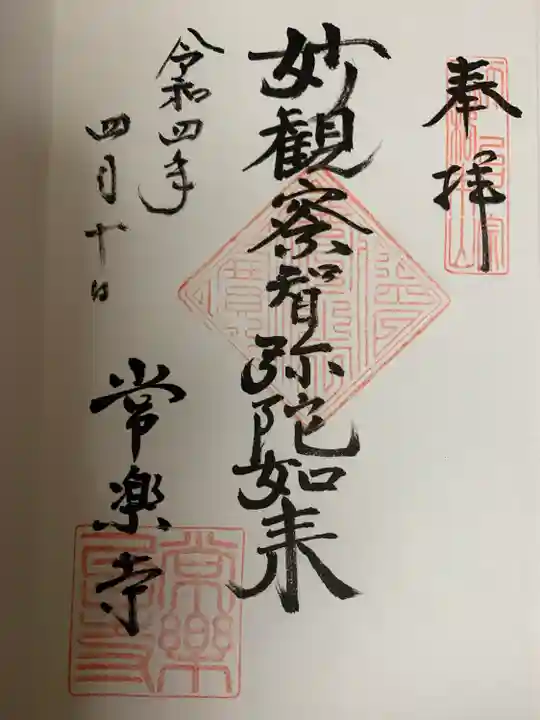 奉拝
妙観察智弥陀如来
令和四年
四月十日
常楽寺
常樂寺